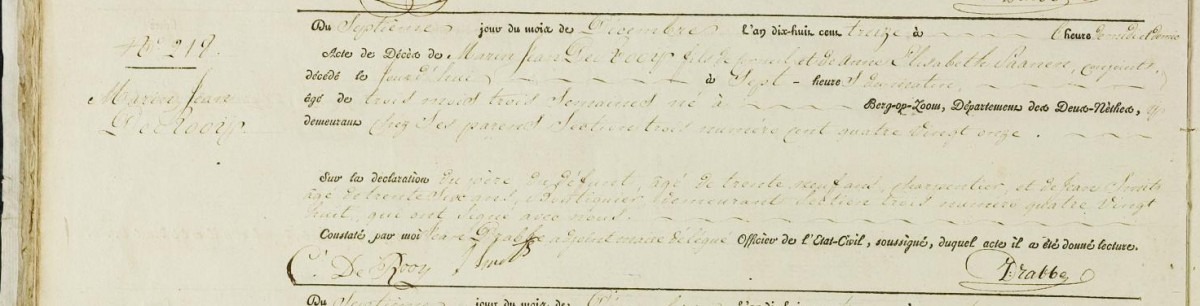 N.º 218.
Marin Jean
De Rooij
Du Septième jour du mois de Décembre l'an dix-huit cent treize à 6 heure
Acte de Décès de Marin Jean De Rooij fils de Corneil et de Anne Elisabeth conjoints,
décédé le jourd'hui à Sept heures du matin,
âgé de trois mois trois Semaines né à Berg-op-Zoom, Département des Deux-Nèthes,
demeurant chez Ses parens Section trois numéro cent quatre vingt onze.
Sur la déclaration du père, du défunt, âgé de trente neuf ans, charpentier, et de Jean Smits
âgé de trente Six ans, Boutiquier, demeurant Section trois numéro quatre vingt
huit, qui ont Signé avec nous.
Constaté par moi Drabbe adjoint maire délégué Officier de l'Etat-Civil, soussigné, duquel acte il a été donné lecture.
C. De Rooy Smits Drabbe
Du Septième jour du mois de l'an dix-huit